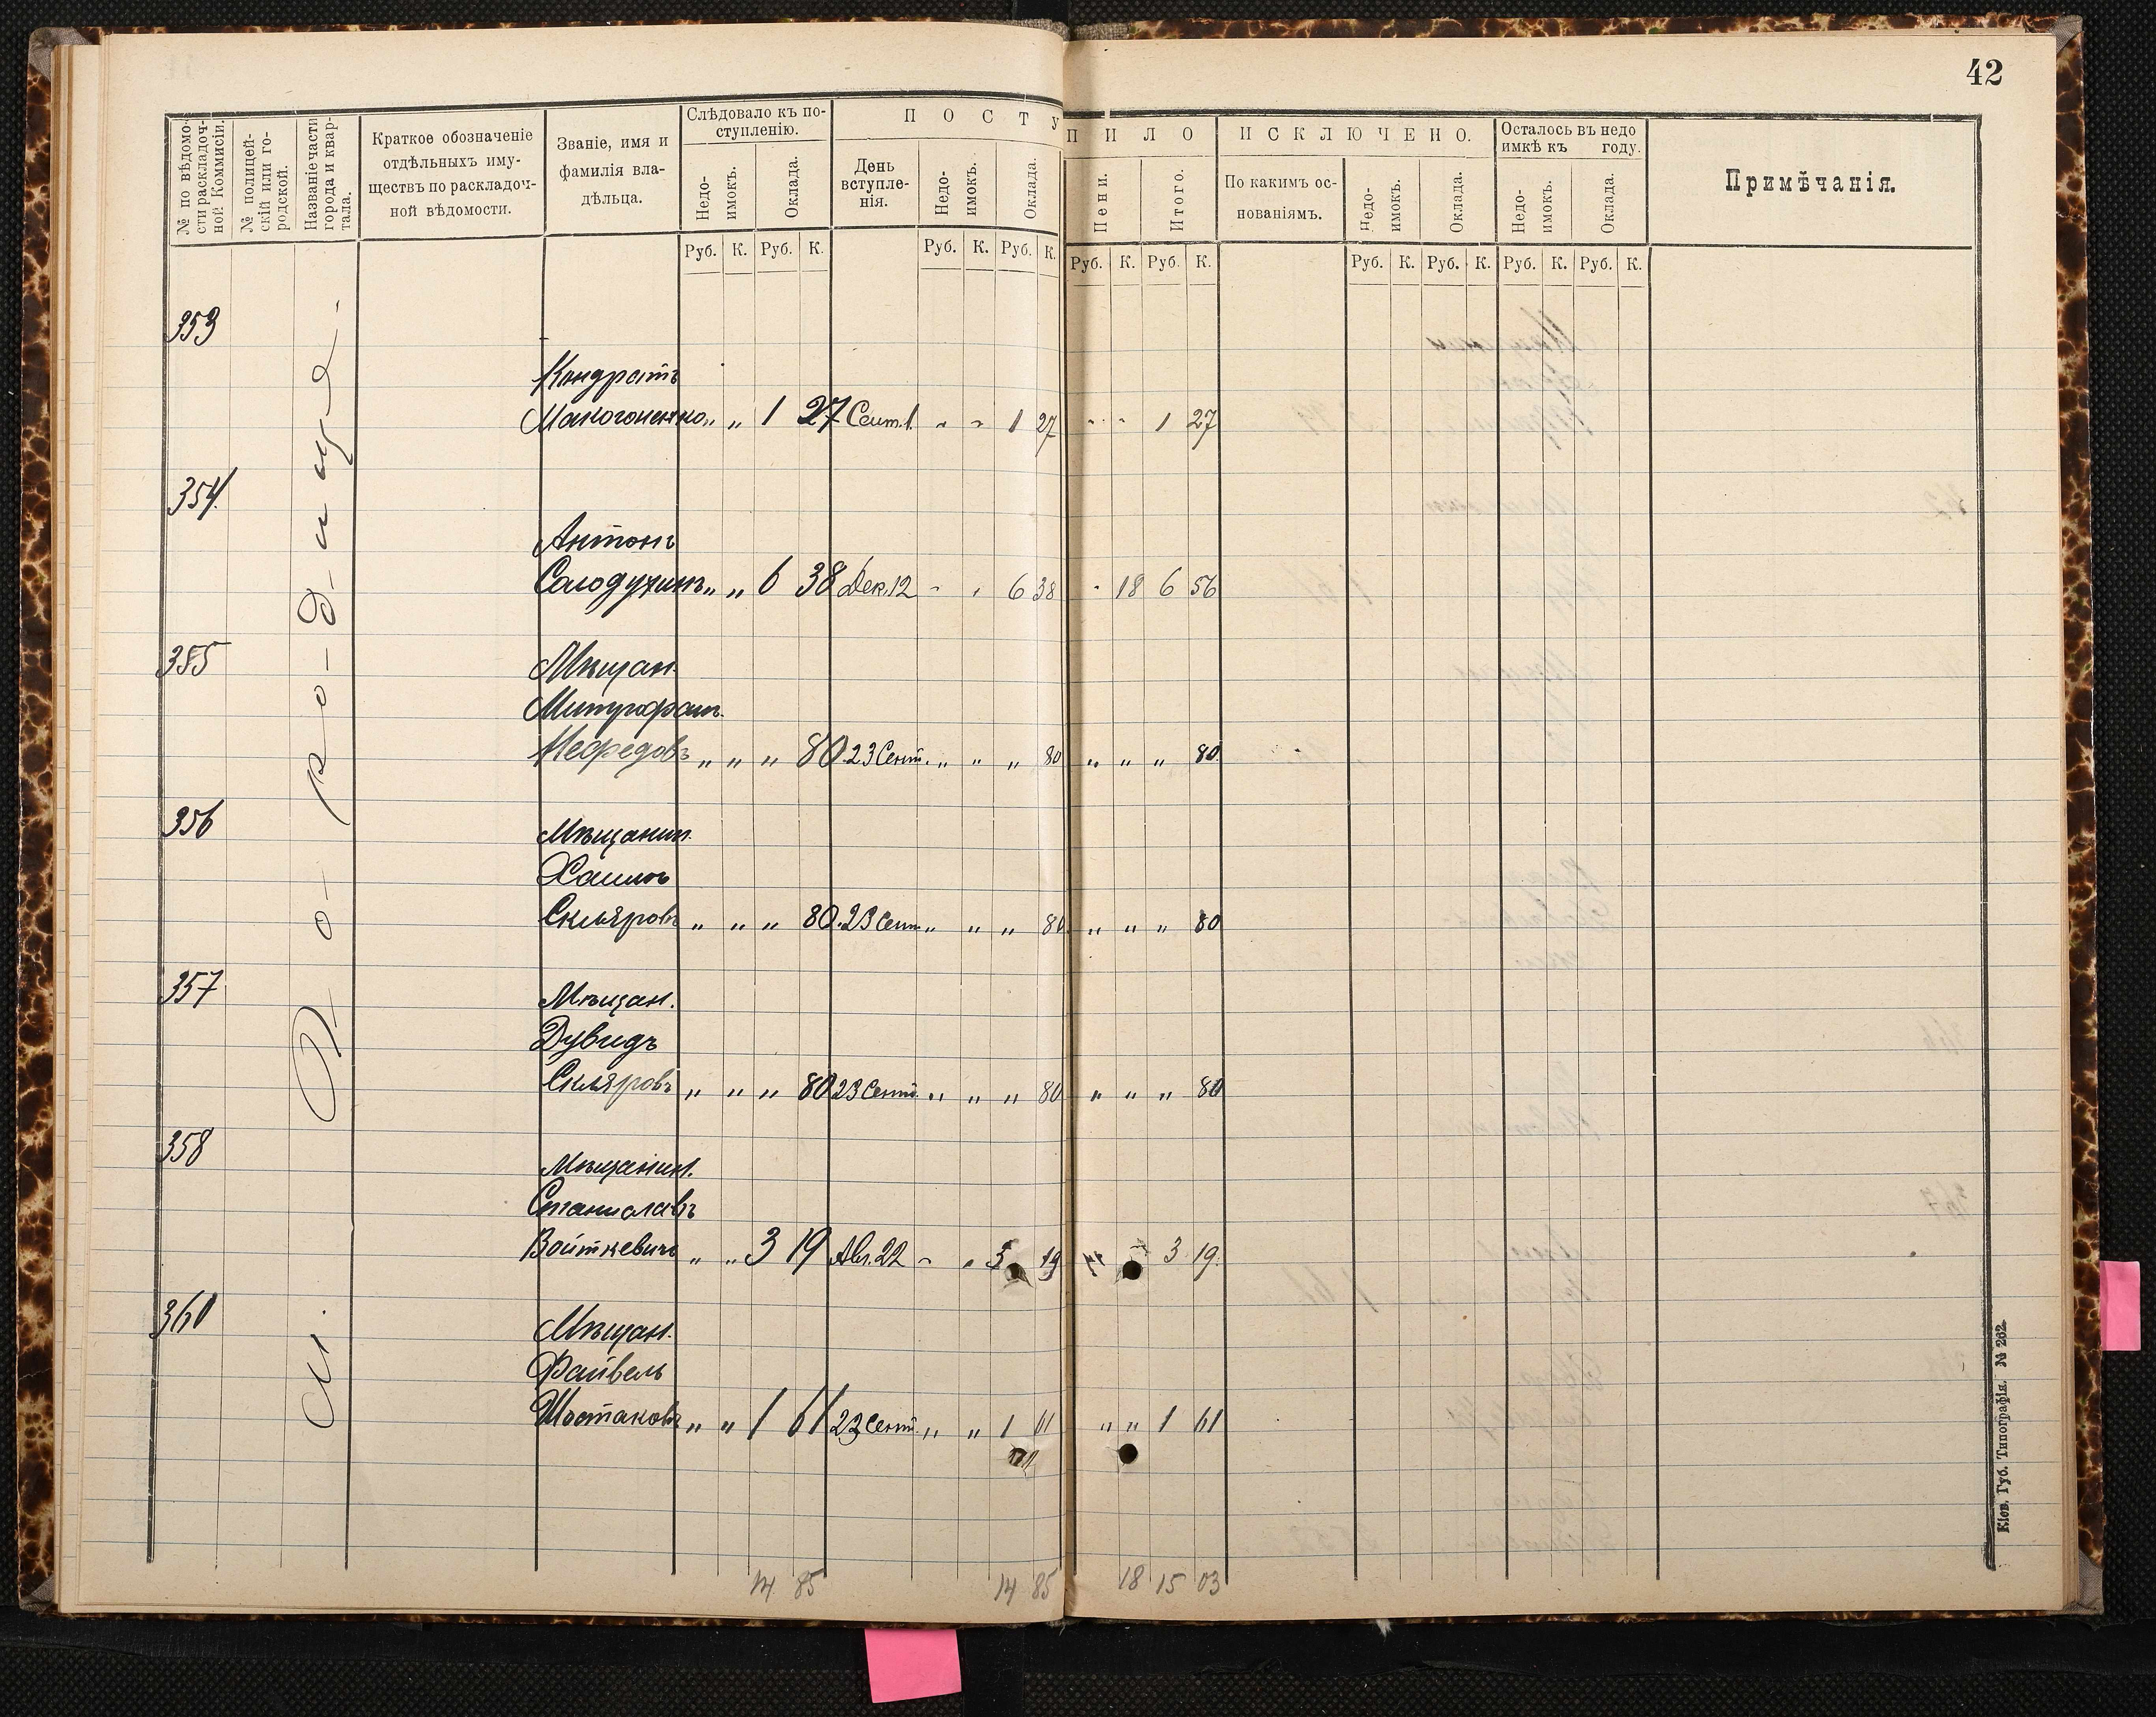 42
№ по вѣдомо-
сти раскладоч-
ной Коммисіи.
№ полицей-
скій или го-
родской.
Названіе части
города и квар-
тала.
Краткое обозначеніе
отдѣльныхъ иму-
ществъ по раскладоч-
ной вѣдомости.
Званіе, имя и
фамилія вла-
дѣльца.
Слѣдовало къ по-
ступленію.
Недо-
имокъ.
Оклада.
ПОСТУПИЛО
День
вступле-
нія.
Недо-
имокъ.
Оклада.
Пени.
Итого.
ИСКЛЮЧЕНО.
По какимъ ос-
нованіямъ.
Недо-
имокъ.
Оклада.
Осталось въ недо
имкѣ къ году.
Недо-
имокъ.
Оклада.
Примѣчанія.
Руб. К. Руб. К. Руб. К. Руб. К. Руб. К. Руб. К. Руб. К. Руб. К. Руб. К. Руб. К.
353
Кондратъ
Макогоненко „ „ 1 27 Сент. 1. - - 1 27 - - 1 27
354.
Антонъ
Солодухинъ „ „ 6 38 Дек. 12 - - 6 38 - 18 6 56
355
Мѣщан.
Митрофан.
Нефедовъ „ „ „ 80. 23 Сент. „ „ „ 80 „ „ „ 80.
356
Мѣщанин.
Хаимъ
Скляровъ „ „ „ 80. 23 Сент. „ „ „ 80 „ „ „ 80
357
Мѣщан.
Дувидъ
Скляровъ „ „ „ 80 23 Сент. „ „ „ 80 „ „ „ 80
358
Мѣщанин.
Станиславъ
Войткевичъ „ „ 3 19 Авг. 22 - „ 3 19 3 19.
360
Мѣщан.
Файвель
Шостаковъ „ „ 1 61 23 Сент. „ „ 1 61 „ „ 1 61
14 85 14 85 18 15 03
Кіев. Губ. Типографія. № 262.